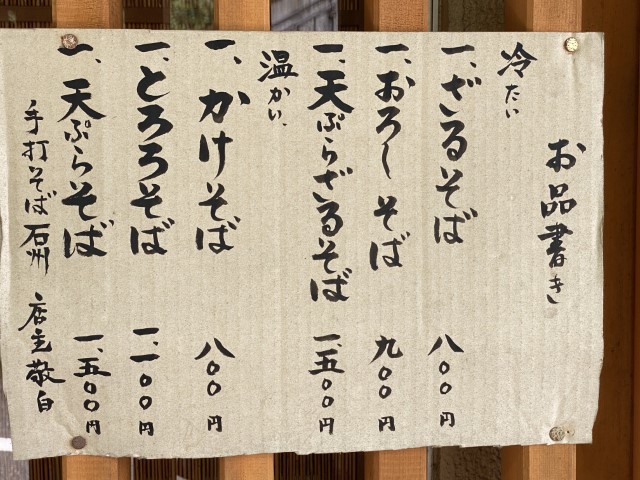 お品書き
冷たい
一、ざるそば 八〇〇円
一、おろしそば 九〇〇円
一、天ぷらざるそば 一、五〇〇円
温かい、
一、かけそば 八〇〇円
一、とろろそば 一、一〇〇円
一、天ぷらそば 一、五〇〇円
手打そば石州 店主敬白